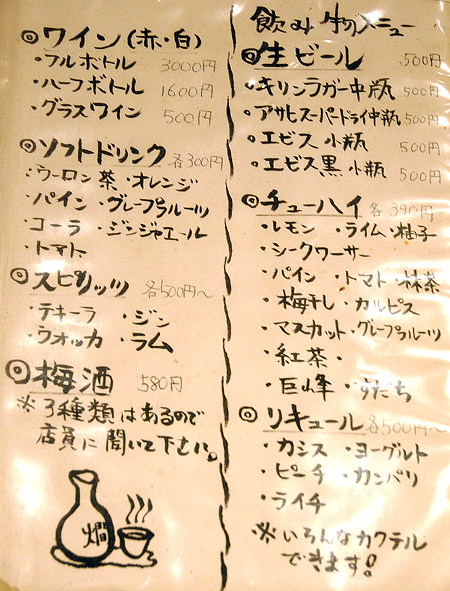 飲み物メニュー
◎生ビール 500円
・キリンラガー中瓶 500円
・アサヒスーパードライ中瓶 500円
・エビス小瓶 500円
・エビス黒小瓶 500円
◎チューハイ 各390円
・レモン ・ライム ・柚子
・シークワーサー
・パイン ・トマト ・抹茶
・梅干し ・カルピス
・マスカット ・グレープフルーツ
・紅茶 ・
・巨峰 ・すだち
◎リキュール 各500円〜
・カシス ・ヨーグルト
・ピーチ ・カンパリ
・ライチ
※いろんなカクテル
できます!
◎ワイン(赤・白)
・フルボトル 3000円
・ハーフボトル 1600円
・グラスワイン 500円
◎ソフトドリンク 各300円
・ウーロン茶 ・オレンジ
・パイン ・グレープフルーツ
・コーラ ・ジンジャエール
・トマト
◎スピリッツ 各500円〜
・テキーラ ・ジン
・ウォッカ ・ラム
◎梅酒 580円
※3種類はあるので
店員に聞いて下さい。
燗